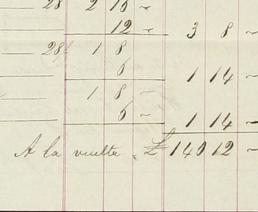 28 2 16 ~
12 ~ 3 8 ~
28 1 8
6 1 14 ~
1 8 ~
6 ~ 1 14 ~
A la vuelta £ 140 12 ~